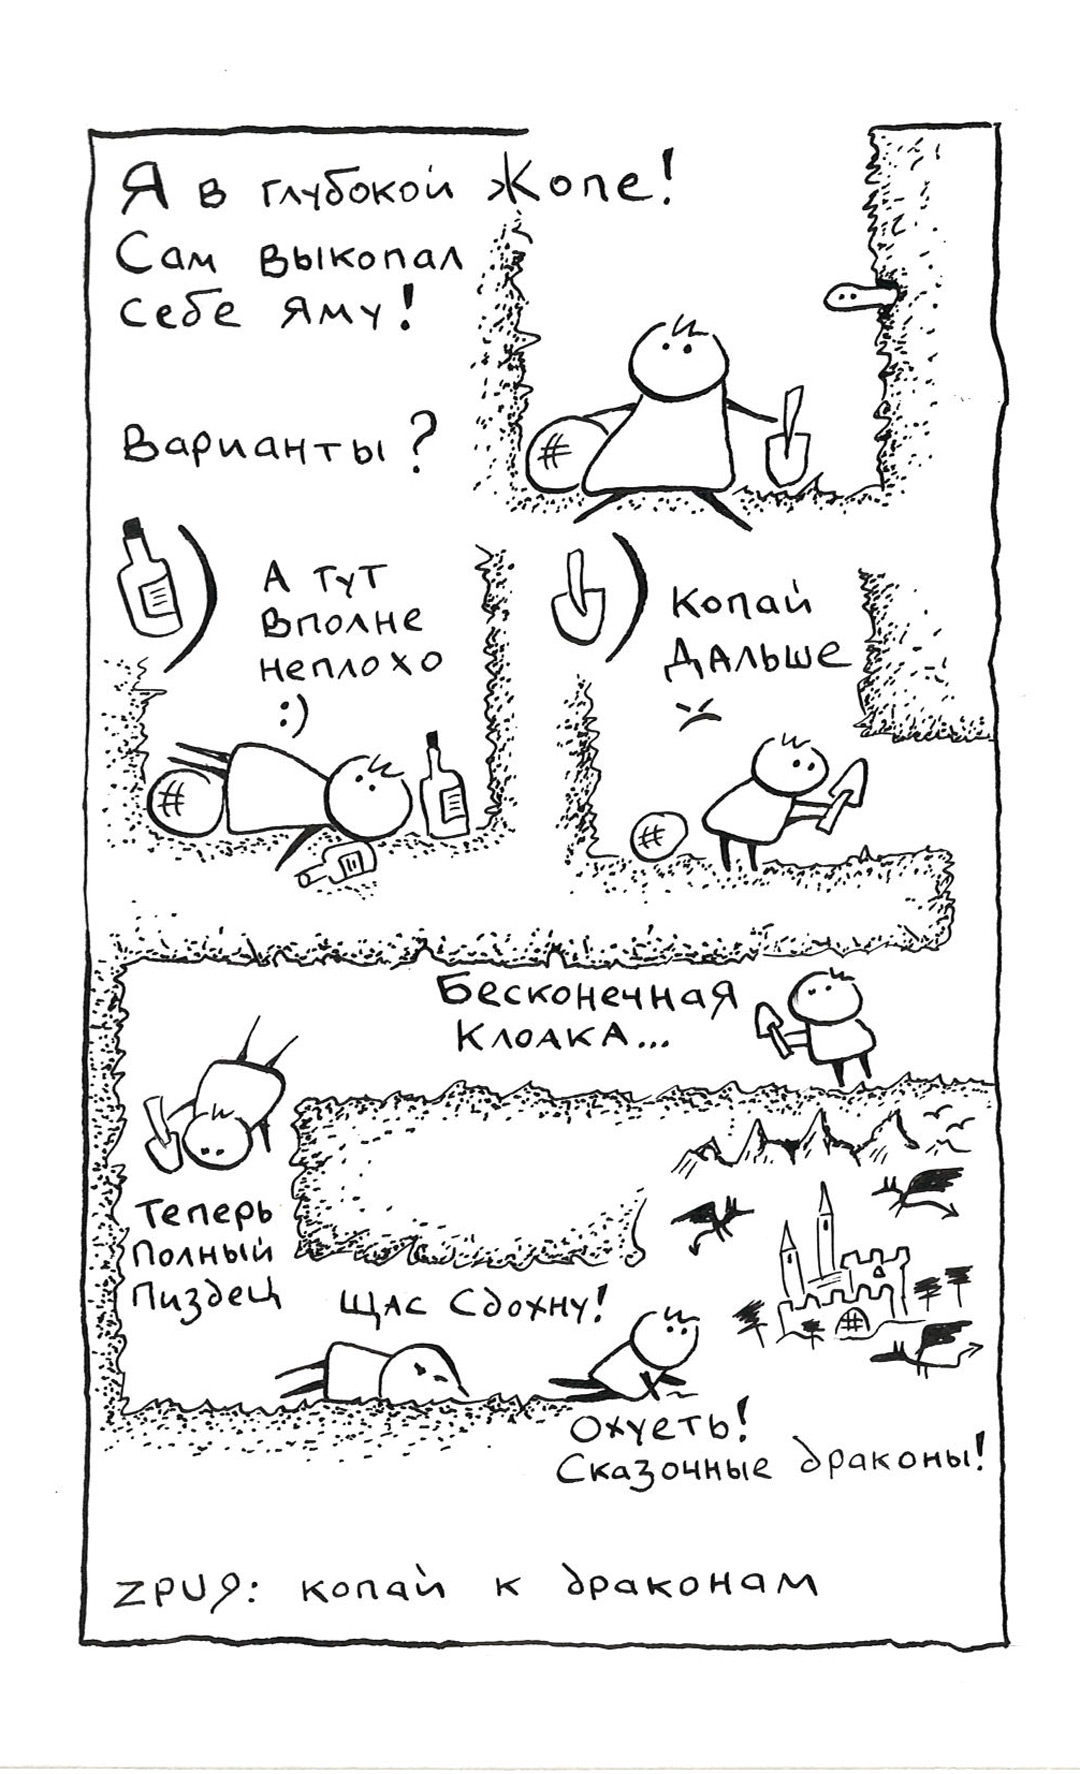 Я в глубокой Жопе!
Сам выкопал
себе яму!
Варианты?
А тут
вполне
неплохо
:)
Копай
дальше
#
#
#
Бесконечная
клоака...
Теперь
полный
пиздец
Щас сдохну!
Охуеть!
Сказочные драконы!
ZPUЯ: копай к драконам